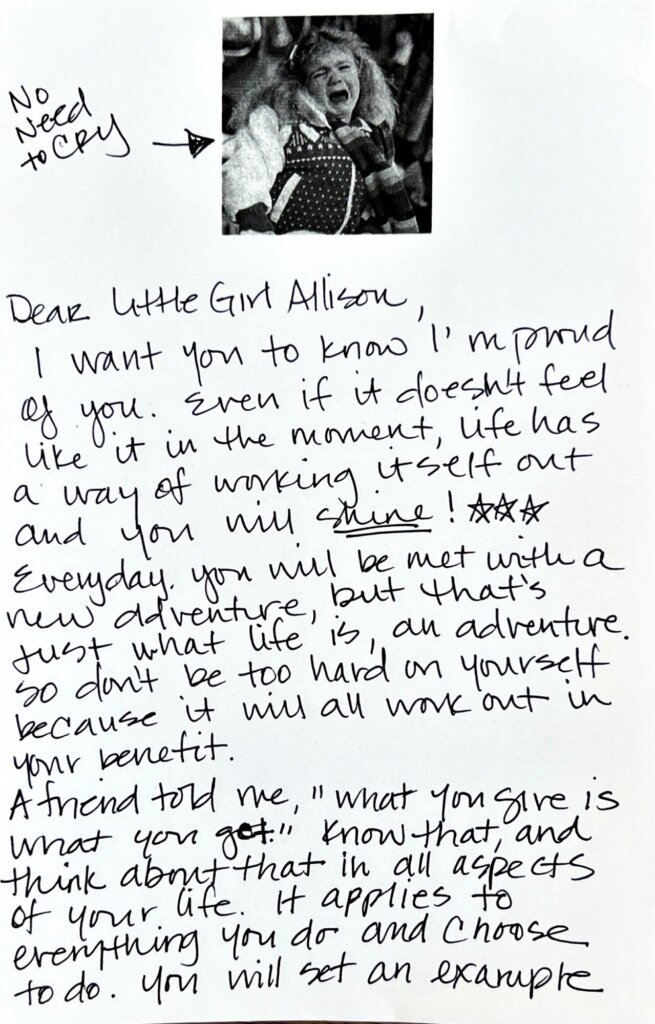 No
Need
to CRY
Dear Little Girl Allison,
I want you to know I'm proud
of you. Even if it doesn't feel
like it in the moment, life has
a way of working itself out
and you will shine! ☆☆☆
Everyday. you will be met with a
new adventure, but that's
just what life is, an adventure.
so don't be too hard on yourself
because it will all work out in
your benefit.
A friend told me, "what you give is
what you get." Know that, and
think about that in all aspects
of your life. It applies to
everything you do and choose
to do. you will set an example